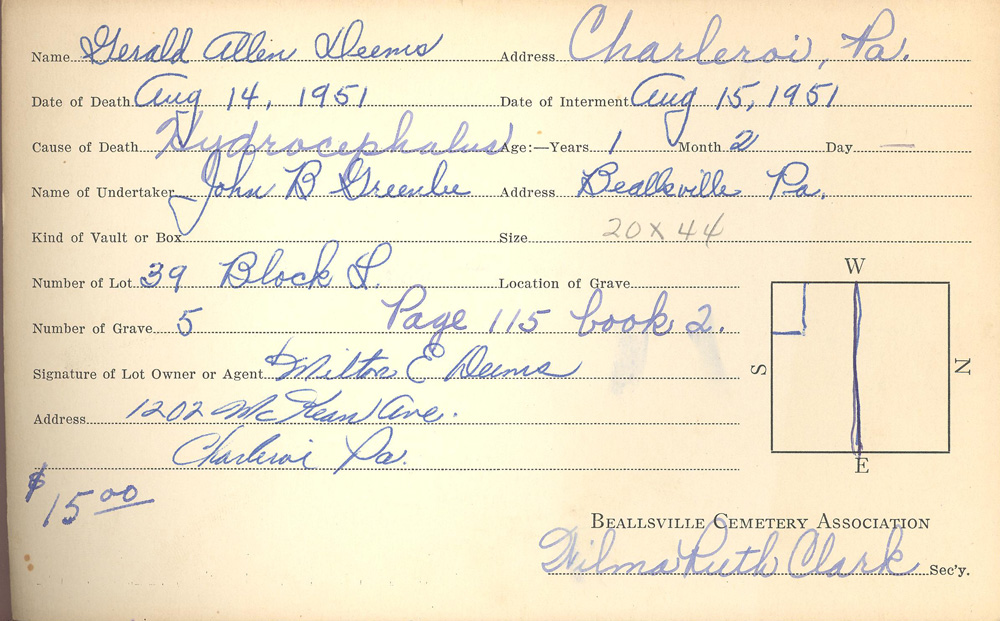 Name Gerald Allen Deems Address Charleroi, Pa.
Date of Death Aug 14, 1951 Date of Interment Aug 15, 1951
Cause of Death Hydrocephalus Age:—Years 1 Month 2 Day —
Name of Undertaker John B Greenlee Address Beallsville Pa.
Kind of Vault or Box Size 20 x 44
Number of Lot 39 Block I. Location of Grave
Number of Grave 5 Page 115 book 2.
Signature of Lot Owner or Agent Milton E Deems
Address 1202 McKean Ave.
Charleroi Pa.
$15.00
W
S
N
E
BEALLSVILLE CEMETERY ASSOCIATION
Wilma Ruth Clark Sec'y.